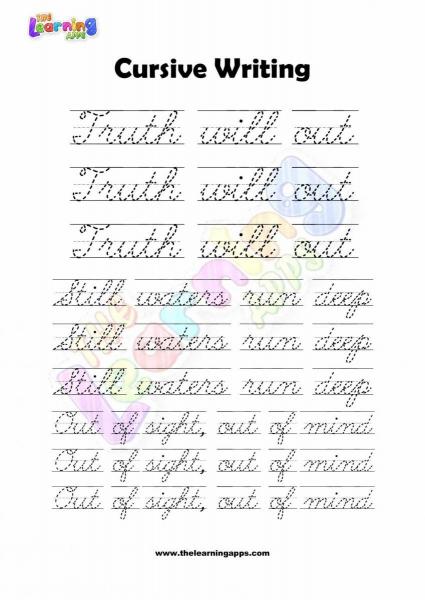 THE
Learning
APPS
Cursive Writing
Truth will out
Truth will out
Truth will out
Still waters run deep
Still waters run deep
Still waters run deep
Out of sight, out of mind
Out of sight, out of mind
Out of sight, out of mind
THE
Learning
APPS
www.thelearningapps.com